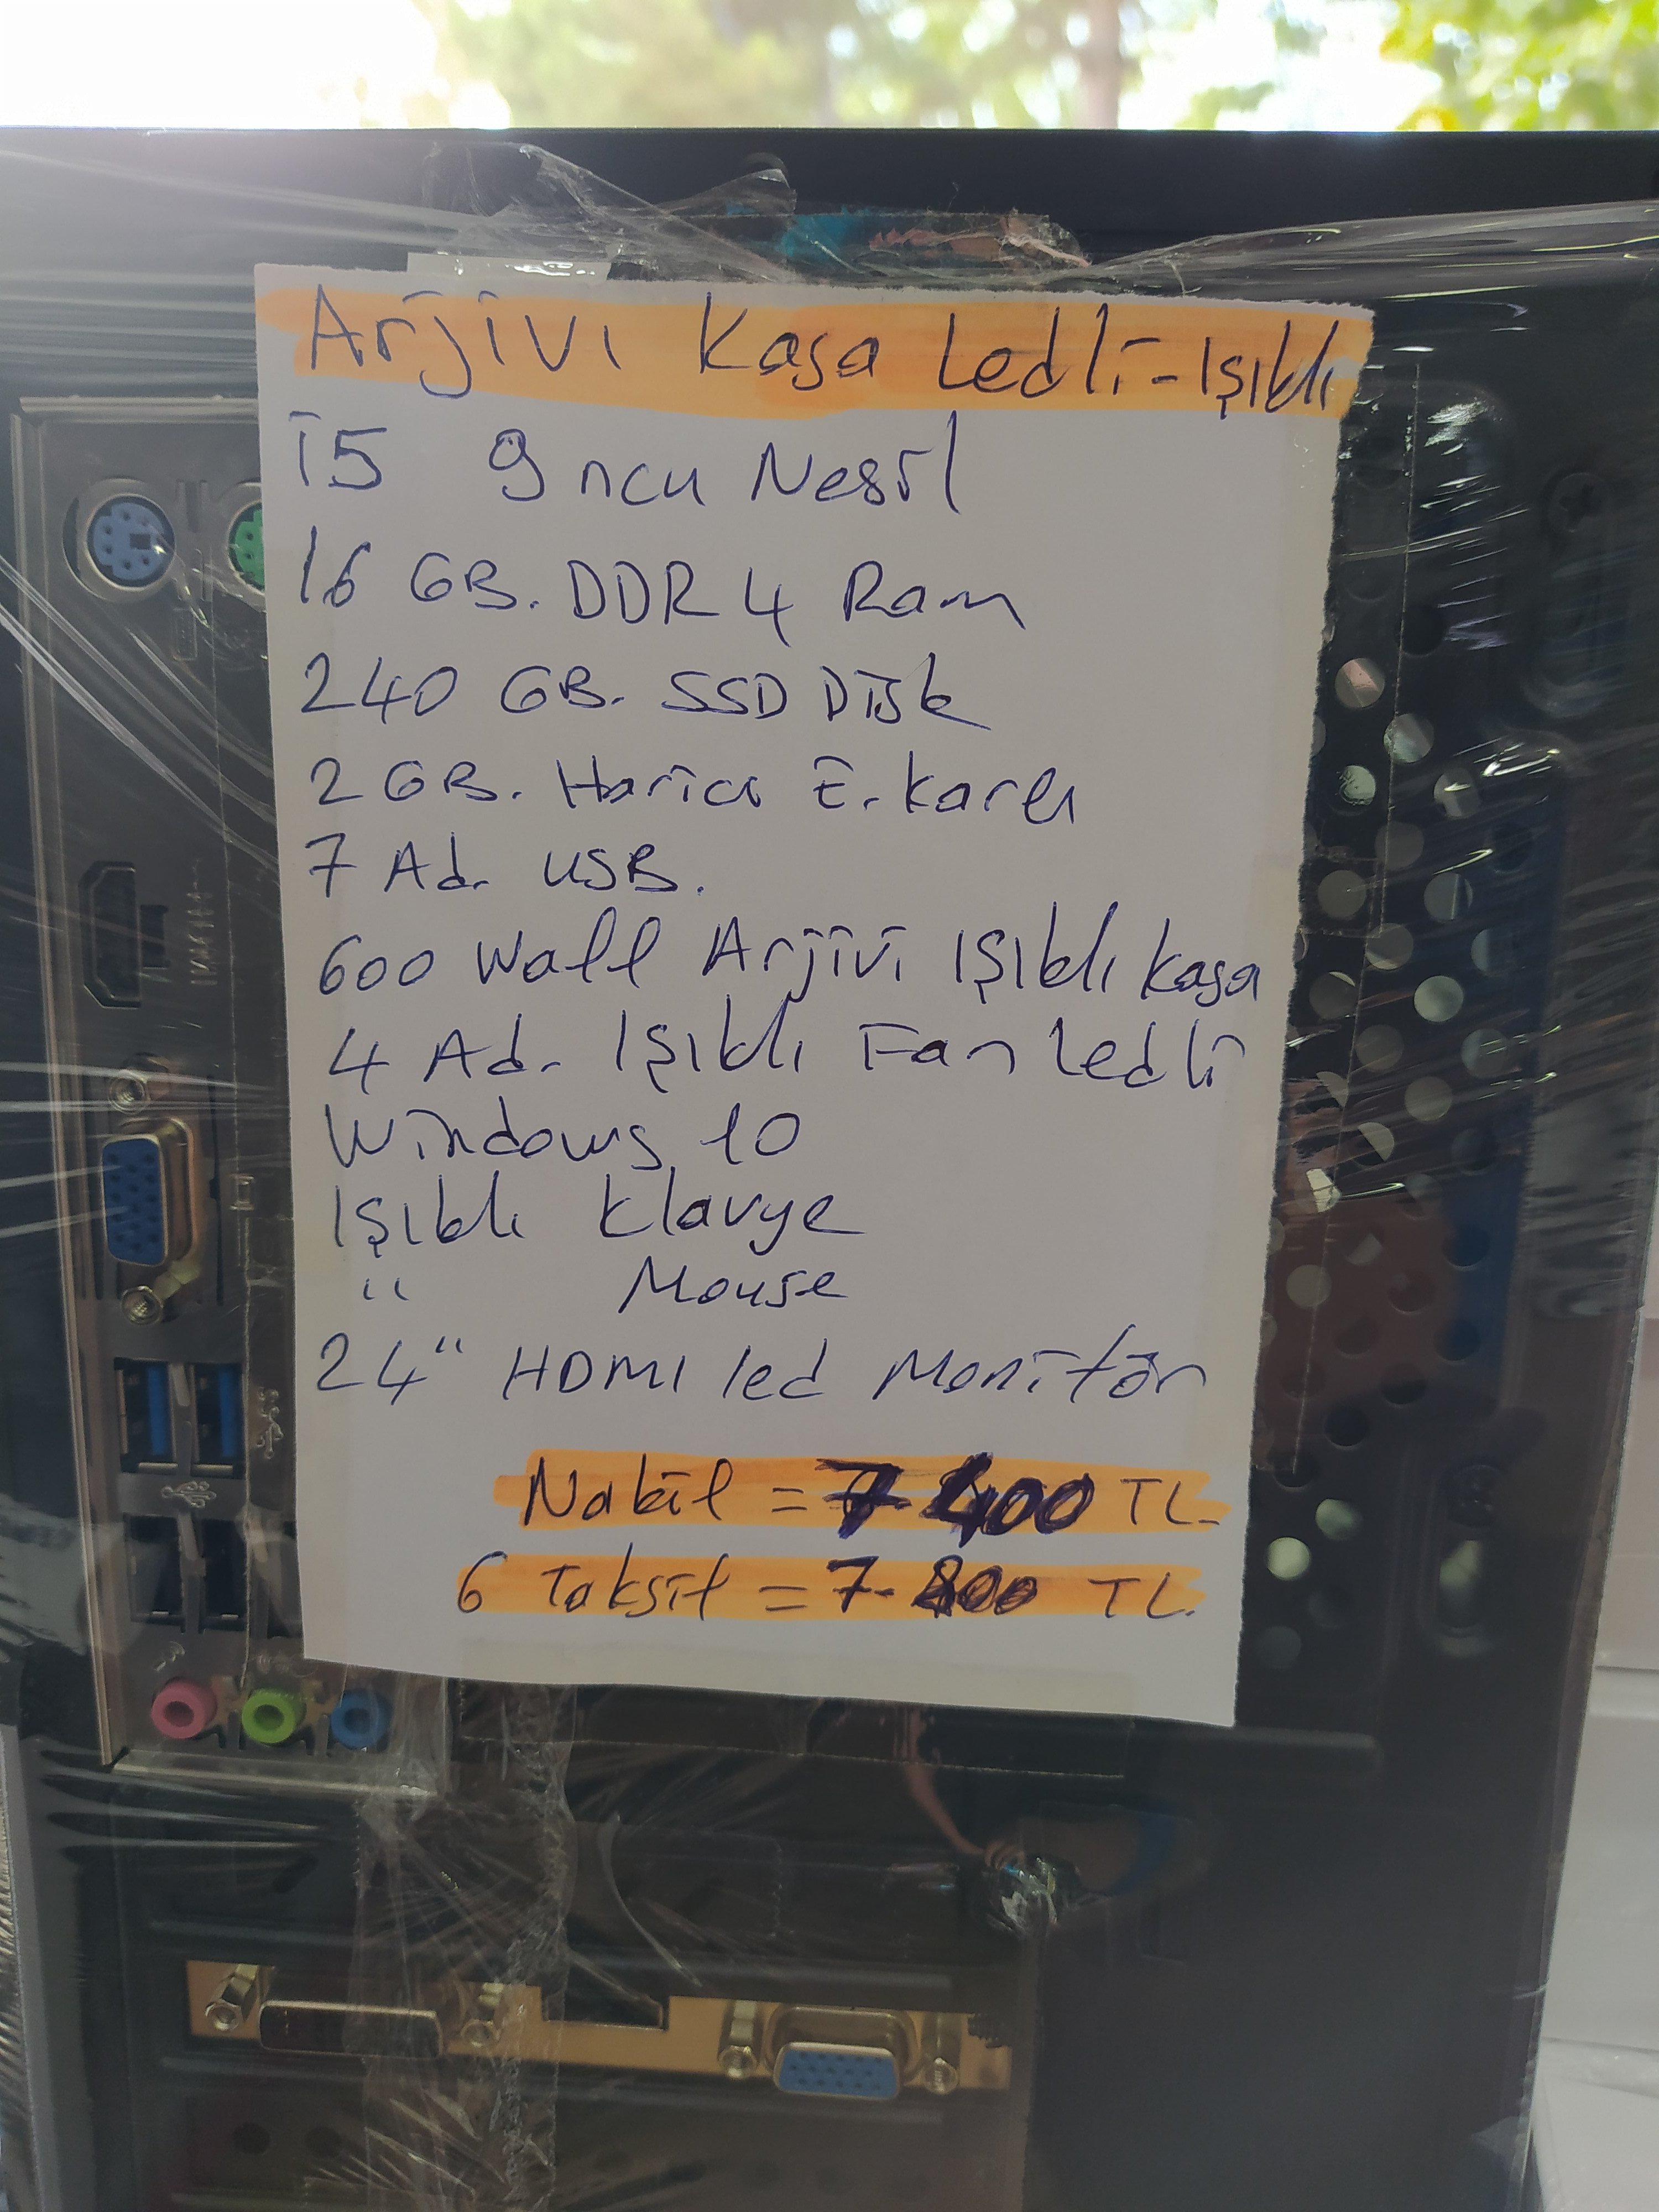 Arjivi Kasa Ledli-Işıklı
i5 9ncu Nesil
16 GB. DDR4 Ram
240 GB. SSD Disk
2 GB. Harici E.kartı
7 Ad. USB.
600 Watt Arjivi Işıklı kasa
4 Ad. Işıklı Fan Ledli
Windows 10
Işıklı klavye
" Mouse
24" HDMI led Monitör
Nakit = 7400 TL.
6 Taksit = 7-800 TL.